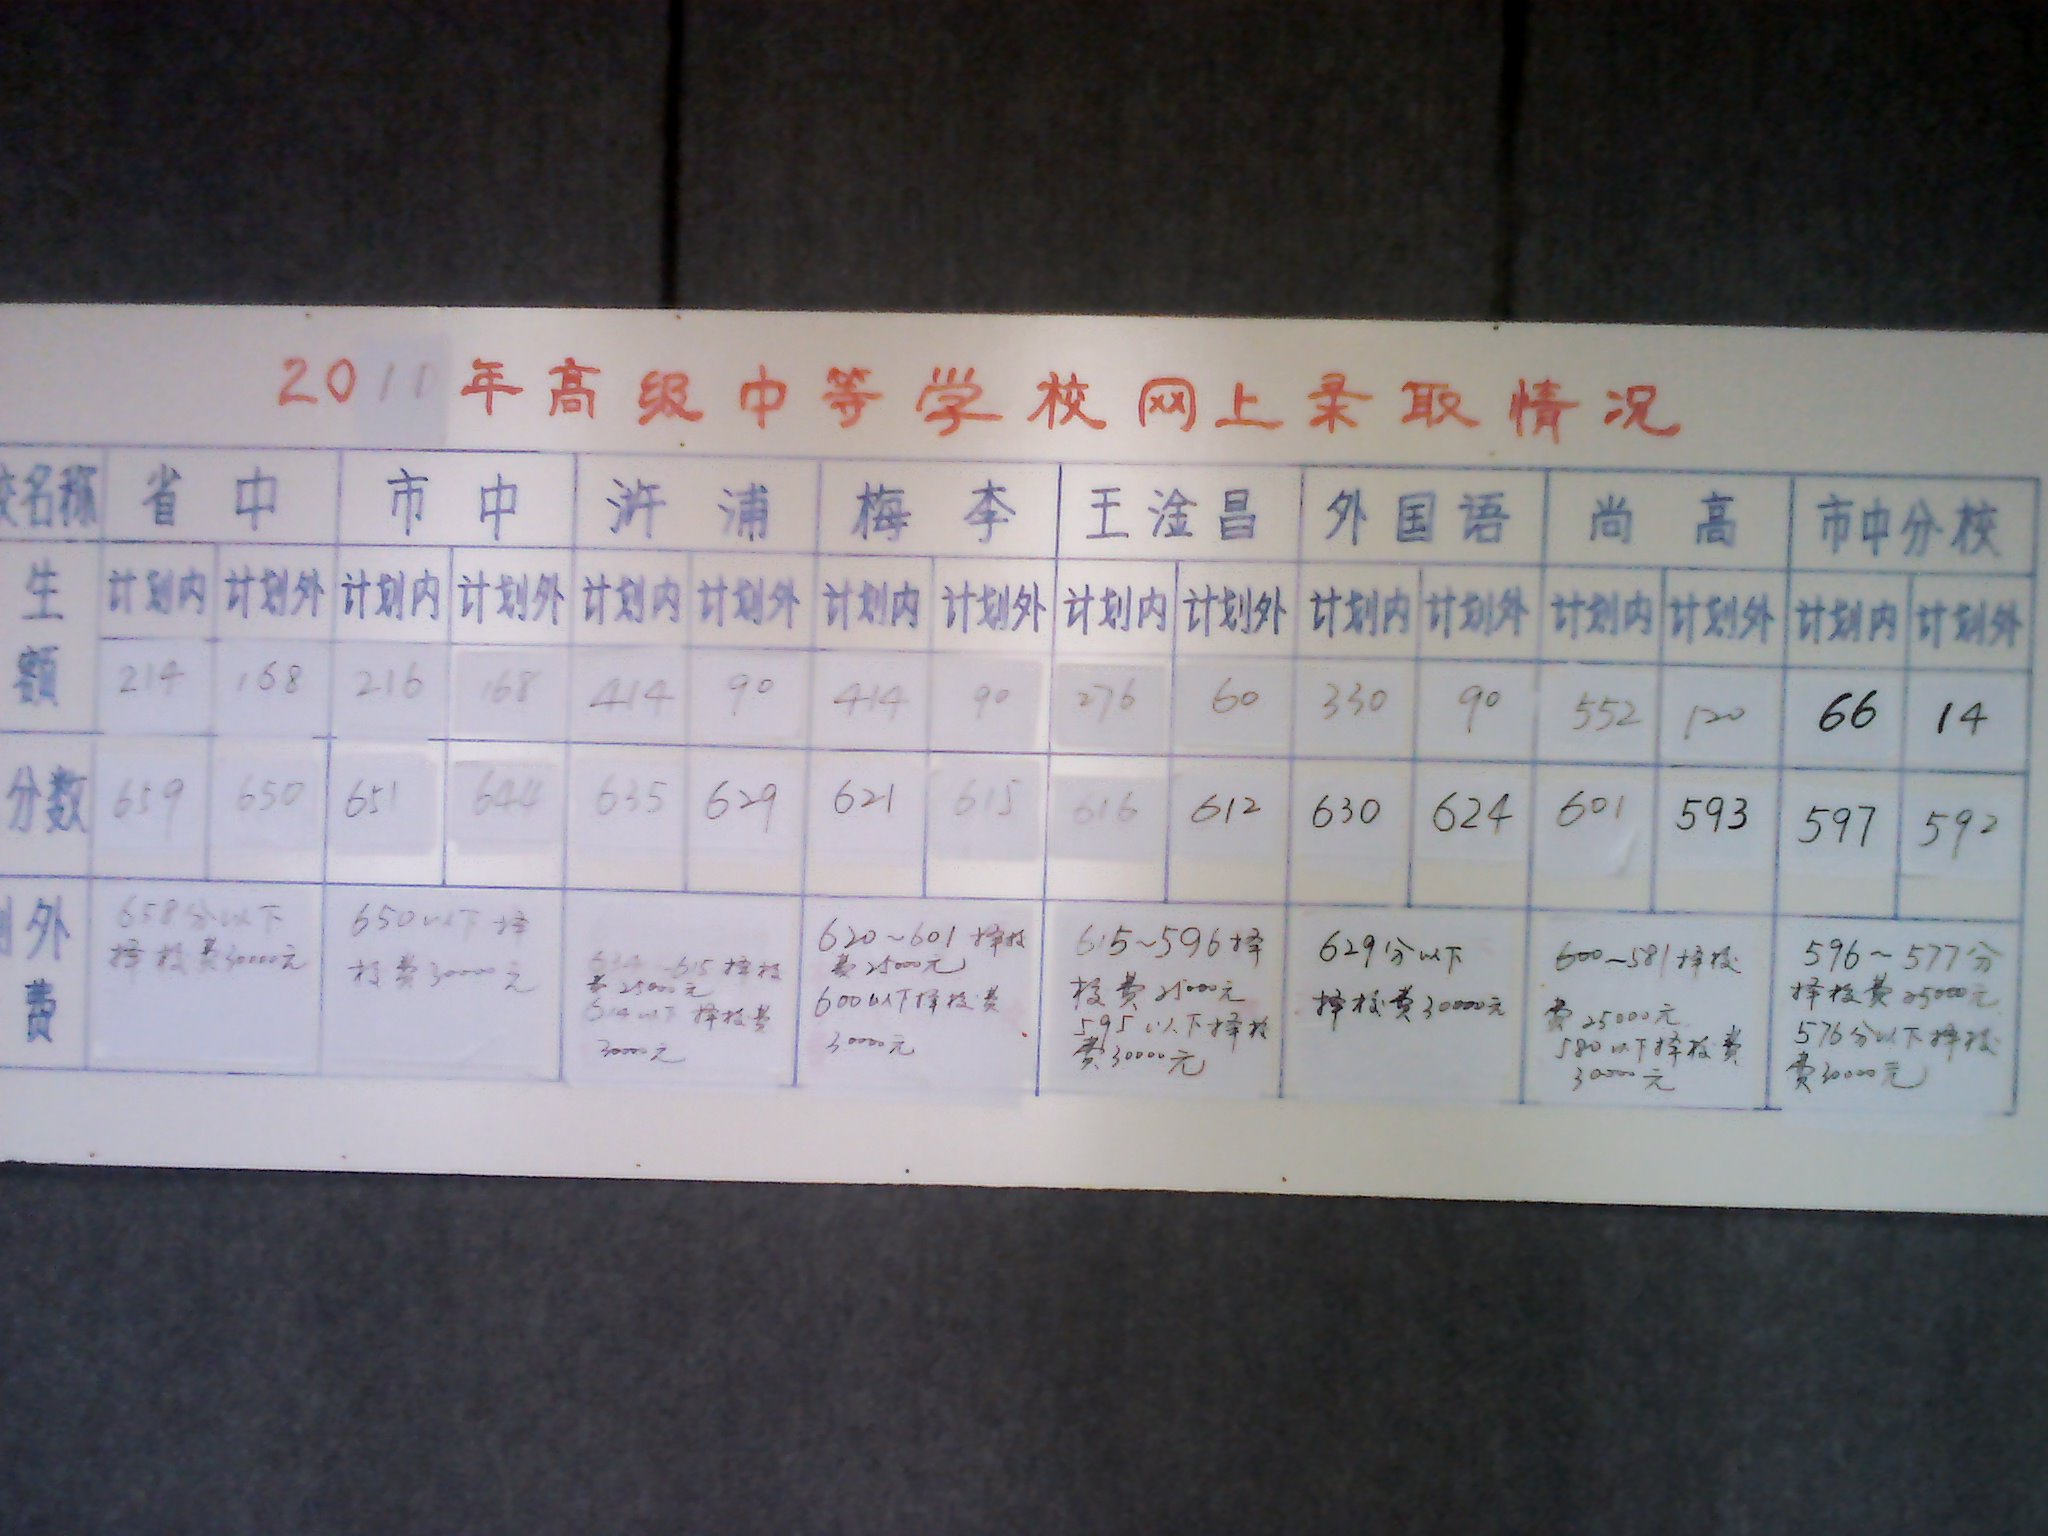 2011年高级中等学校网上录取情况
校名称 省中 市中 浒浦 梅李 王淦昌 外国语 尚高 市中分校
生 计划内 计划外 计划内 计划外 计划内 计划外 计划内 计划外 计划内 计划外 计划内 计划外 计划内 计划外 计划内 计划外
额 214 168 216 168 414 90 414 90 276 60 330 90 552 120 66 14
分数 659 650 651 644 635 629 621 615 616 612 630 624 601 593 597 592
外
费
658分以下
择校费30000元
650以下择
校费30000元
634~615择校
费25000元
614以下择校费
30000元
620~601择校
费25000元
600以下择校费
30000元
615~596择
校费25000元
595以下择校
费30000元
629分以下
择校费30000元
600~581择校
费25000元
580以下择校费
30000元
596~577分
择校费25000元
576分以下择校
费30000元